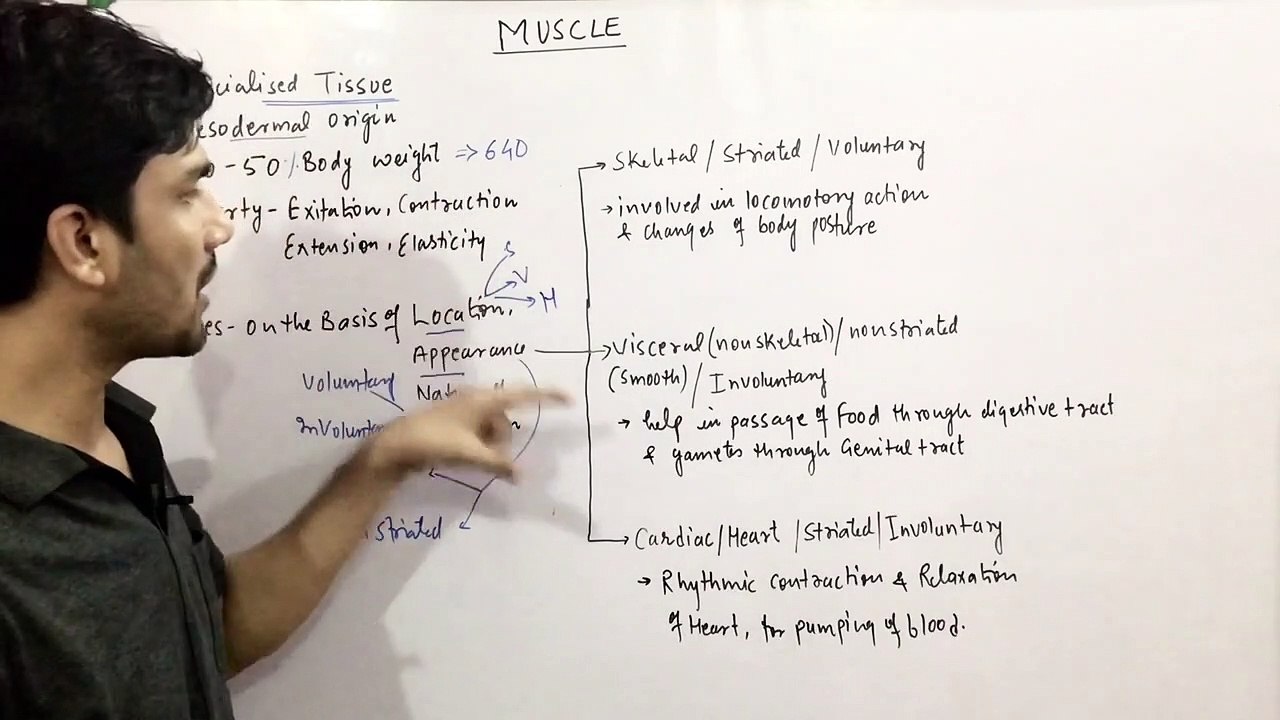 MUSCLE
cialised Tissue
esodermal origin
-50% Body weight => 640
rty - Exitation, Contraction
Extension, Elasticity
S
V
H
es - on the Basis of Location,
Appearance
Voluntary
Nat
Involunta
Striated
Skeletal / Striated / Voluntary
→ involved in locomotory action
& changes of body posture
Visceral (nonskeletal) / nonstriated
(Smooth) / Involuntary
→ help in passage of Food through digestive tract
& gametes through Genital tract
Cardiac/Heart / Striated / Involuntary
→ Rhythmic contraction & Relaxation
of Heart, for pumping of blood.